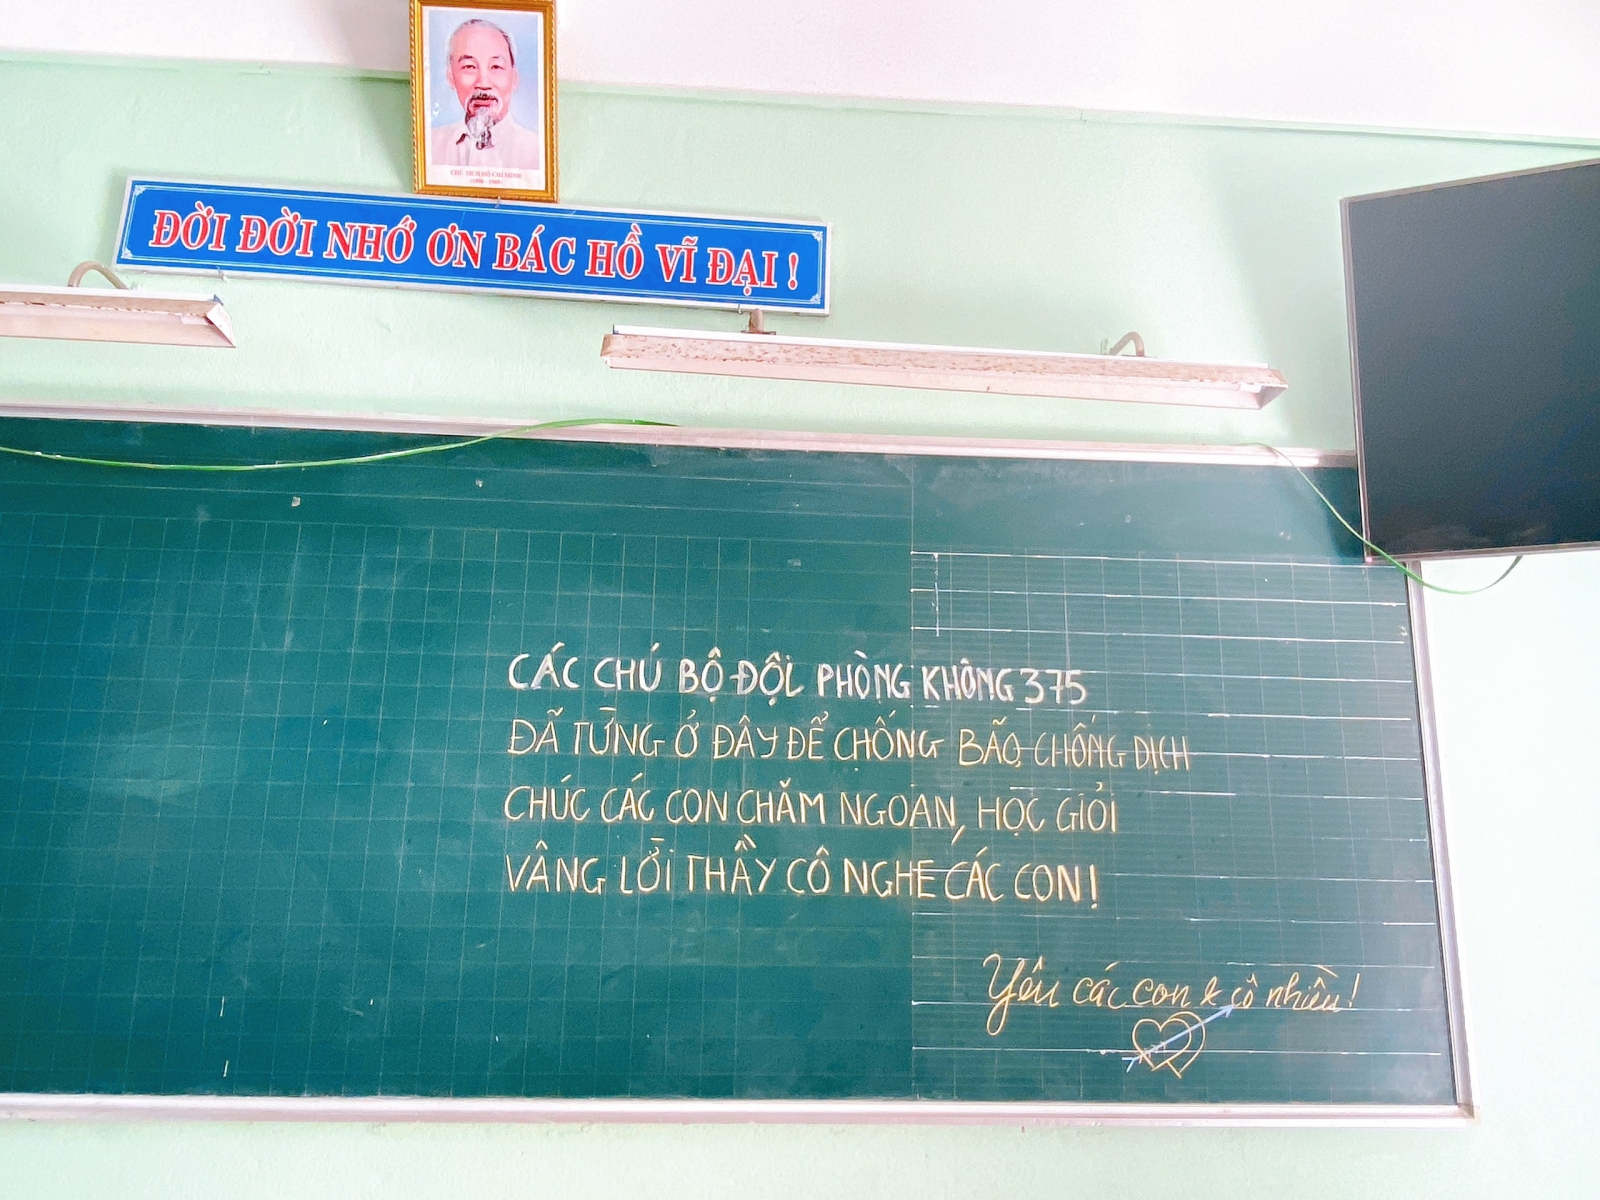 CHỦ TỊCH HỒ CHÍ MINH
(1890 - 1969)
ĐỜI ĐỜI NHỚ ƠN BÁC HỒ VĨ ĐẠI !
CÁC CHÚ BỘ ĐỘI PHÒNG KHÔNG 375
ĐÃ TỪNG Ở ĐÂY ĐỂ CHỐNG BÃO, CHỐNG DỊCH
CHÚC CÁC CON CHĂM NGOAN, HỌC GIỎI
VÂNG LỜI THẦY CÔ NGHE CÁC CON!
Yêu các con & cô nhiều!